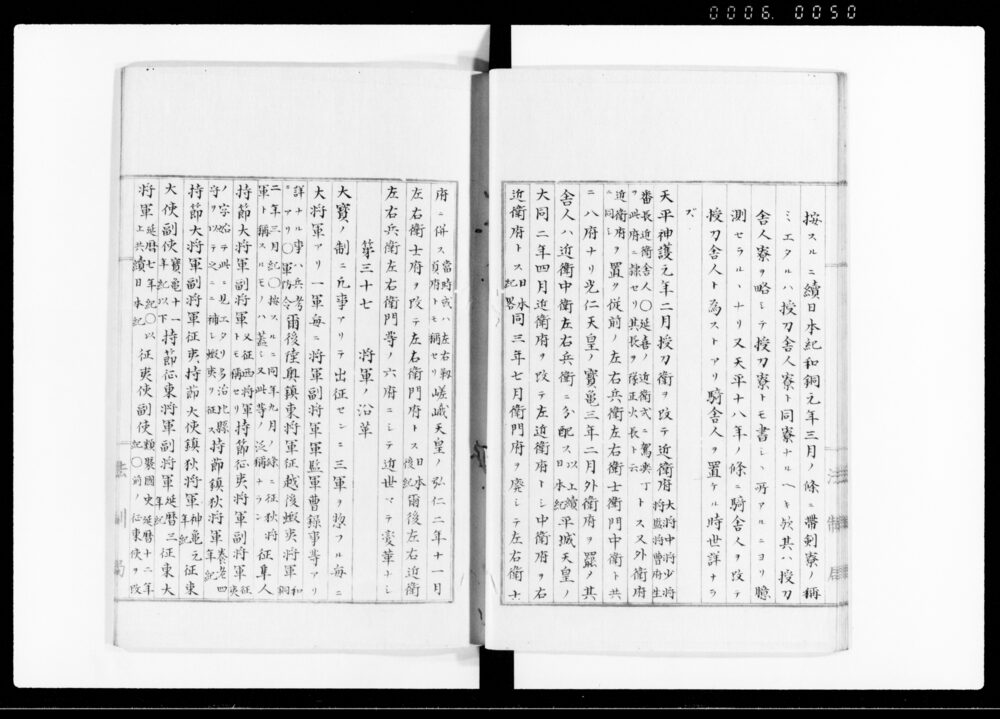 0006. 0050
按スルニ續日本紀和銅元年三月ノ條ニ帶劍寮ノ稱
ミエタルハ授刀舍人寮ト同寮ナルヘキ歟其ハ授刀
舍人寮ヲ略シテ授刀寮トモ書シヽ所アルニヨリ臆
測セラルヽナリ又天平十八年ノ條ニ騎舍人ヲ改テ
授刀舍人ト為ストアリ騎舍人ヲ置ケル時世詳ナラ
ズ
天平神護元年二月授刀衛ヲ改テ近衛府大將中將少將
將監將曹府生
番長近衛舍人〇延喜ノ近衛式ニ駕輿丁トス外衛府
ヲ此府ニ隷セリ其長ヲ
近衛府ヲ置ク從前ノ左右兵衛左右衛士衛門中衛ト共
同シ
ニ八府ナリ光仁天皇ノ寶亀三年二月外衛府ヲ罷ノ其
舍人ハ近衛中衛左右兵衛ニ分配ス以上續日本紀平城天皇ノ
大同二年四月近衛府ヲ改テ左近衛府トシ中衛府ヲ右
近衛府トス日本紀畧同三年七月衛門府ヲ廢シテ左右衛士
府ニ併ス當時或ハ左右靱負府トモ稱セリ嵯峨天皇ノ弘仁二年十一月
左右衛士府ヲ改テ左右衛門府トス日本後紀爾後左右近衛
左右兵衛左右衛門等ノ六府ニシテ近世マテ變革ナシ
第三十七 將軍ノ沿革
大寶ノ制ニ凡事アリテ出征センニ三軍ヲ惣フル毎ニ
大將軍アリ一軍毎ニ將軍副將軍軍監軍曹錄事等アリ
詳ナル事ハ兵考ニアリ〇軍防令爾後陸奥鎮東將軍征越後蝦夷將軍和銅
二年三月紀〇按スルニ同年九月ノ條ニ征狄將
軍ト稱スルモノハ蓋シ又此等ノ泛稱ナラン征隼人
持節大將軍副將軍又征西將軍トモ稱セリ持節征夷將軍副將軍征夷
ノ字始テ此ニ見エタリ多治比縣
守ヲ以テ之ニ補シ蝦夷ヲ征ス持節鎮狄將軍養老四年紀
持節大將軍副將軍征夷持節大使鎮狄將軍神亀元年紀征東
大使副使寶亀十一年紀以下持節征東將軍副將軍延暦三年紀征東大
將軍延暦七年紀〇以上共續日本紀征夷使副使類聚國史延暦十二年紀〇前ノ征東使ヲ改
法制局